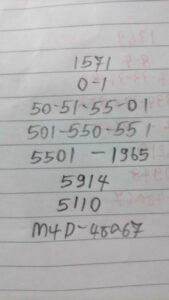 1571
0-1
50-51-55-01
501-550-551
5501 - 1965
5914
5110
M4D-48967